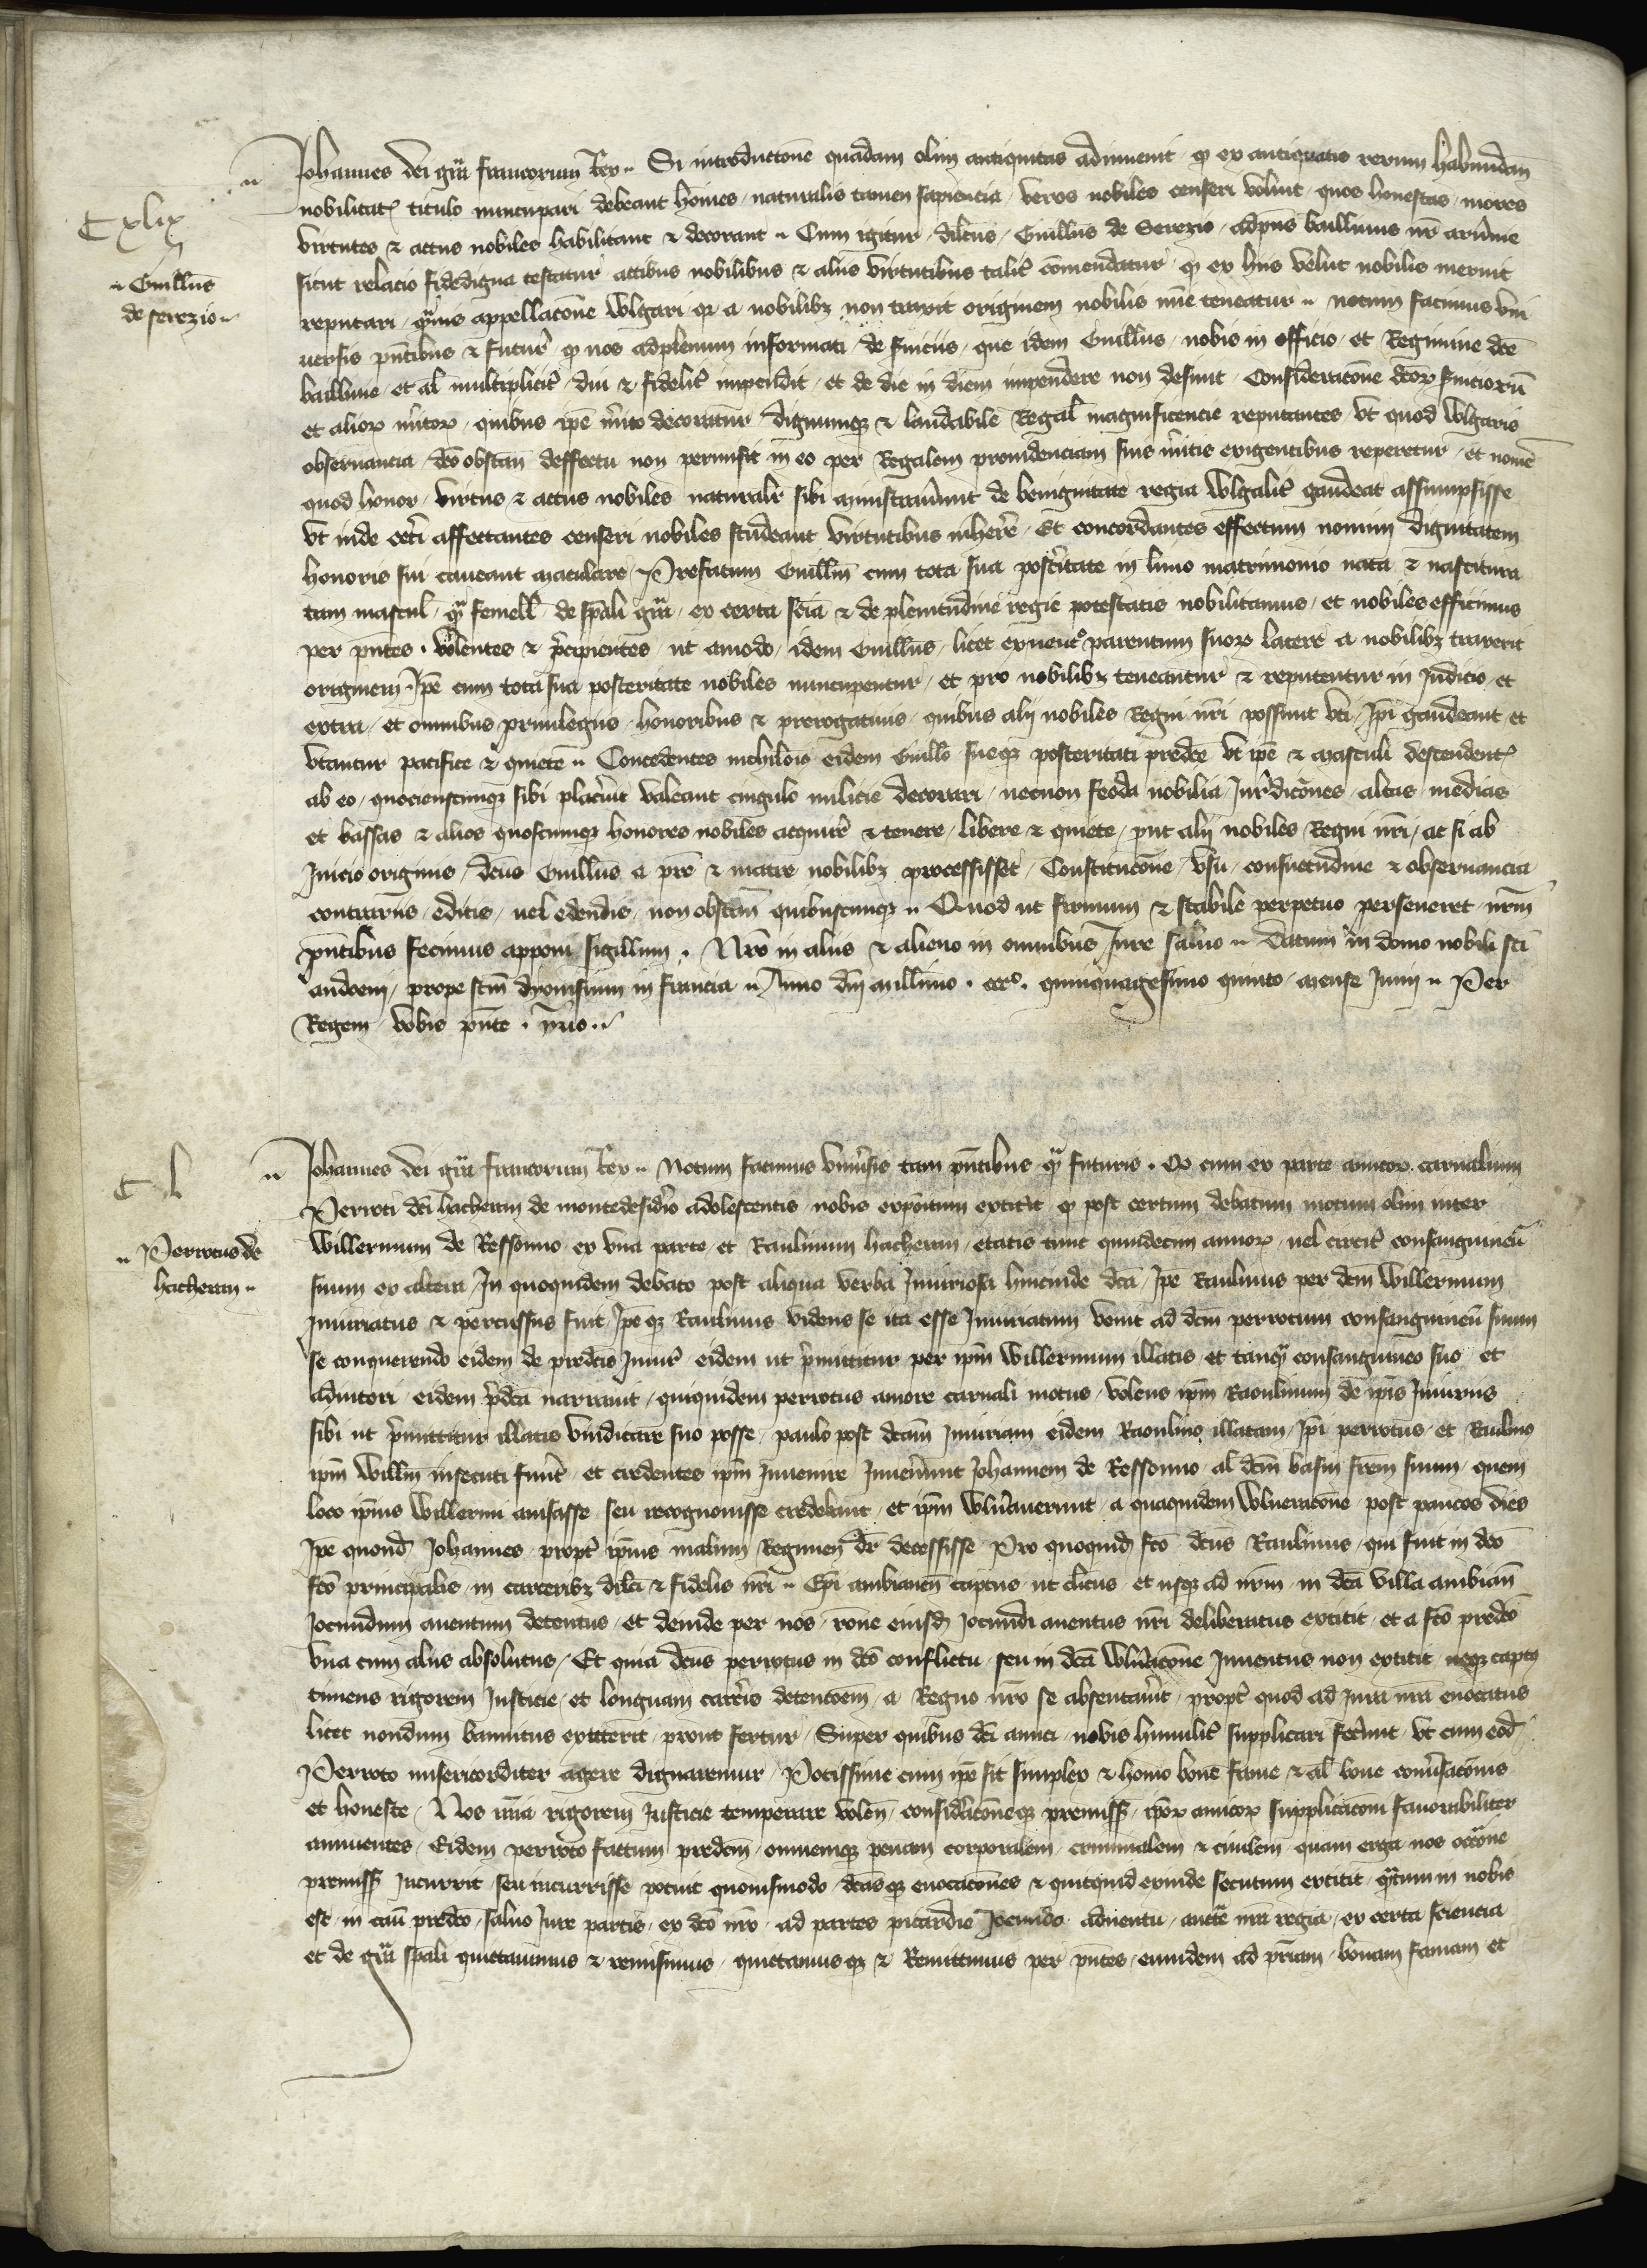 Johannes dei gr̃a francorum Rex Si introductõne quadam olim antiquitas adinuenit q̃ ex antiquatis rerum habundan̄
nobilitat titulo nuncupari debeant hoĩes naturalis tamen sapiencia veros nobiles censeri voluit quos honestas mores
virtutes ⁊ actus nobiles habilitant ⁊ decorant Cum igitur dilc̃us Guillũs de Serezio adp̃ns bailliuus nr̃ aruĩnie
Cxlix
Guillũs
de serezio
sicut relacio fidedigna testatur actibus nobilibus ⁊ aliis virtutibus talit̾ cõmendatur q̃ ex hiis velut nobilis meruit
reputari q̃uis appellacõne wlgari q̾ a nobilibȝ non traxit originem nobilis mĩe teneatur notum facimus vni
uersis pñtibus ⁊ futur̾ q̃ nos adplenum informati de s̾uiciis que idem Guillũs nobis in officio et Regimine dc̃e
bailliuie et al̃ multiplicit̾ diu ⁊ fidelit̾ impendit et de die in diem impendere non desinit Consideracõne dc̃oꝝ s̾uicioꝝ
et alioꝝ m̾itoꝝ quibus ip̃e m̾ito decoratur dignumqȝ ⁊ laudabile Regal̃ magnificencie reputantes vt quod wlgaris
obseruancia dc̃o obstan̄ deffectu non permisit in eo per Regalem prouidenciam suis m̾itis exigentibus reperetur et nomẽ
quod honor virtus ⁊ actus nobiles naturalit̾ sibi aministrau̾unt de benignitate regia wlgalit̾ gaudeat assumpsisse
vt inde cet̾i affectantes censeri nobiles studeant virtutibus inher̾e Et concordantes effectum nomini dignitatem
honoris sui caueant maculare Prefatum Guillm̃ cum tota sua post̾itate in limo matrimonio nata ⁊ nascitura
tam mascul̃ q̃ femell̃ de sp̃ali gr̃a ex certa sc̃ia ⁊ de plenitudine regie potestatis nobilitamus et nobiles efficimus
per pñtes volentes ⁊ p̾cipientes ut amodo idem Guillũs licet ex neut̾o parentum suoꝝ latere a nobilibȝ traxerit
originem Ip̃e cum tota sua posteritate nobiles nuncupentur et pro nobilibȝ teneantur ⁊ reputentur in Judicio et
extra et omnibus priuilegiis honoribus ⁊ prerogatiuis quibus alij nobiles Regni nr̃i possunt vti Ip̃i gaudeant et
vtantur pacifice ⁊ quiete Concedentes nichilois eidem Guillo sueqȝ posteritati predc̃e vt ip̃e ⁊ masculi descendent̾
ab eo quocienscunqȝ sibi plac̾uit valeant cingulo milicie decorari necnon feoda nobilia Jur̃dicõnes altas medias
et bassas ⁊ alios quoscunqȝ honores nobiles acquir̾e ⁊ tenere libere ⁊ quiete put alij nobiles Regni nr̃i ac si ab
Inicio originis dc̃us Guillũs a pr̃e ⁊ matre nobilibȝ processisset Constitucõne vsu consuetudine ⁊ obseruancia
contrariis editis uel edendis non obstan̄ quibuscunqȝ Quod ut firmum ⁊ stabile perpetuo perseueret nr̃m
pñtibus fecimus apponi sigillum Nr̃o in aliis ⁊ alieno in omnibus Jure saluo Datum in domo nobili sc̃i
audoeni prope sc̃m dyonisium in francia Anno dñi millimo cccº quinquagesimo quinto mense Junij Per
Regem vobis pñte yuo

Johannes dei gr̃a francorum Rex Notum facimus vniu̾sis tam pñtibus q̃ futuris Q̃ cum ex parte amicoꝝ carnalium
Cl
Perroti dc̃i hacheran de montedesid̾io adolescentis nobis expõitum extitit q̃ post certum debatum motum olim inter
Perrotus de
hacheran
Willermum de Ressonno ex vna parte et Raulinum hacheran etatis tunc quindecim annoꝝ uel circit̾ consanguineũ
suum ex altera In quoquidem debato post aliqua verba Iniuriosa hincinde dc̃a Ip̃e Raulinus per dc̃m Willermum
Iniuriatus ⁊ percussus fuit Ip̃e qȝ Raulinus videns se ita esse Iniuriatum venit ad dc̃m perrotum consanguineũ suum
se conquerendo eidem de predc̃is Iniur̾ eidem ut p̾mittitur per ip̃m Willermum illatis et tanq̃ consanguineo suo et
adiutori eidem p̾dc̃a narrauit quiquidem perrotus amore carnali motus volens ip̃m Raoulinum de ip̃is Iniuriis
sibi ut p̾mittitur illatis vindicare suo posse paulo post dc̃am Iniuriam eidem Raoulino illatam Ip̃i perrotus et Raulinꝰ
ip̃m Willm̃ insecuti fuer̾t et credentes ip̃m Inuenire Inuen̾unt Johannem de Ressonno al̃ dc̃m basin fr̃em suum quem
loco ip̃ius Willermi auisasse seu recognouisse credebant et ip̃m wln̾auerunt a quaquidem wlneracõne post paucos dies
Ip̃e quond̃ Johannes propt̾ ip̃ius malum Regimen dr̃ decessisse Pro quoquid̃ fc̃o dc̃us Raulinus qui fuit in dc̃o
fc̃o principalis in carceribȝ dilc̃i ⁊ fidelis nr̃i Ep̃i ambianen̄ captus ut cl̾icus et usqȝ ad nr̃m in dc̃a villa ambian̄
Jocundum aduentum detentus et deinde per nos rõne eiusd̃ Jocundi aduentus nr̃i deliberatus extitit et a fc̃o predc̃o
vna cum aliis absolutus Et quia dc̃us perrotus in dc̃o conflictu seu in dc̃a wln̾acõne Inuentus non extitit neqȝ captꝰ
timens rigorem Justicie et longuam carc̾is detentoem a Regno nr̃o se absentau̾it propt̾ quod ad Jura nr̃a euocatus
licet nondum bannitus extiterit prout fertur Super quibus dc̃i amici nobis humilit̾ supplicari fec̾unt vt cum eod̃
Perroto misericorditer agere dignaremur Potissime cum ip̃e sit simplex ⁊ homo bone fame ⁊ al̃ bone conu̾sacõnis
et honeste Nos nr̃ia rigorem Justicie temperare volen̄ consid̾acõneqȝ premiss̃ ip̃oꝝ amicoꝝ supplicaconi fauorabiliter
annuentes Eidem perroto factum predc̃m omnemqȝ penam corporalem criminalem ⁊ ciuilem quam erga nos occõne
premiss̃ Incurrit seu incurrisse potuit quouismodo dc̃asqȝ euocacõnes ⁊ quitquid exinde secutum extitit q̃tum in nobis
est in casu̾ predc̃o saluo Jure partis ex dc̃o nr̃o ad partes picardie Jocundo aduentu auctẽ nr̃a regia ex certa sciencia
et de gr̃a sp̃ali quictauimus ⁊ remisimus quictamusqȝ ⁊ Remittimus per pñtes eumdem ad pr̃iam bonam famam et